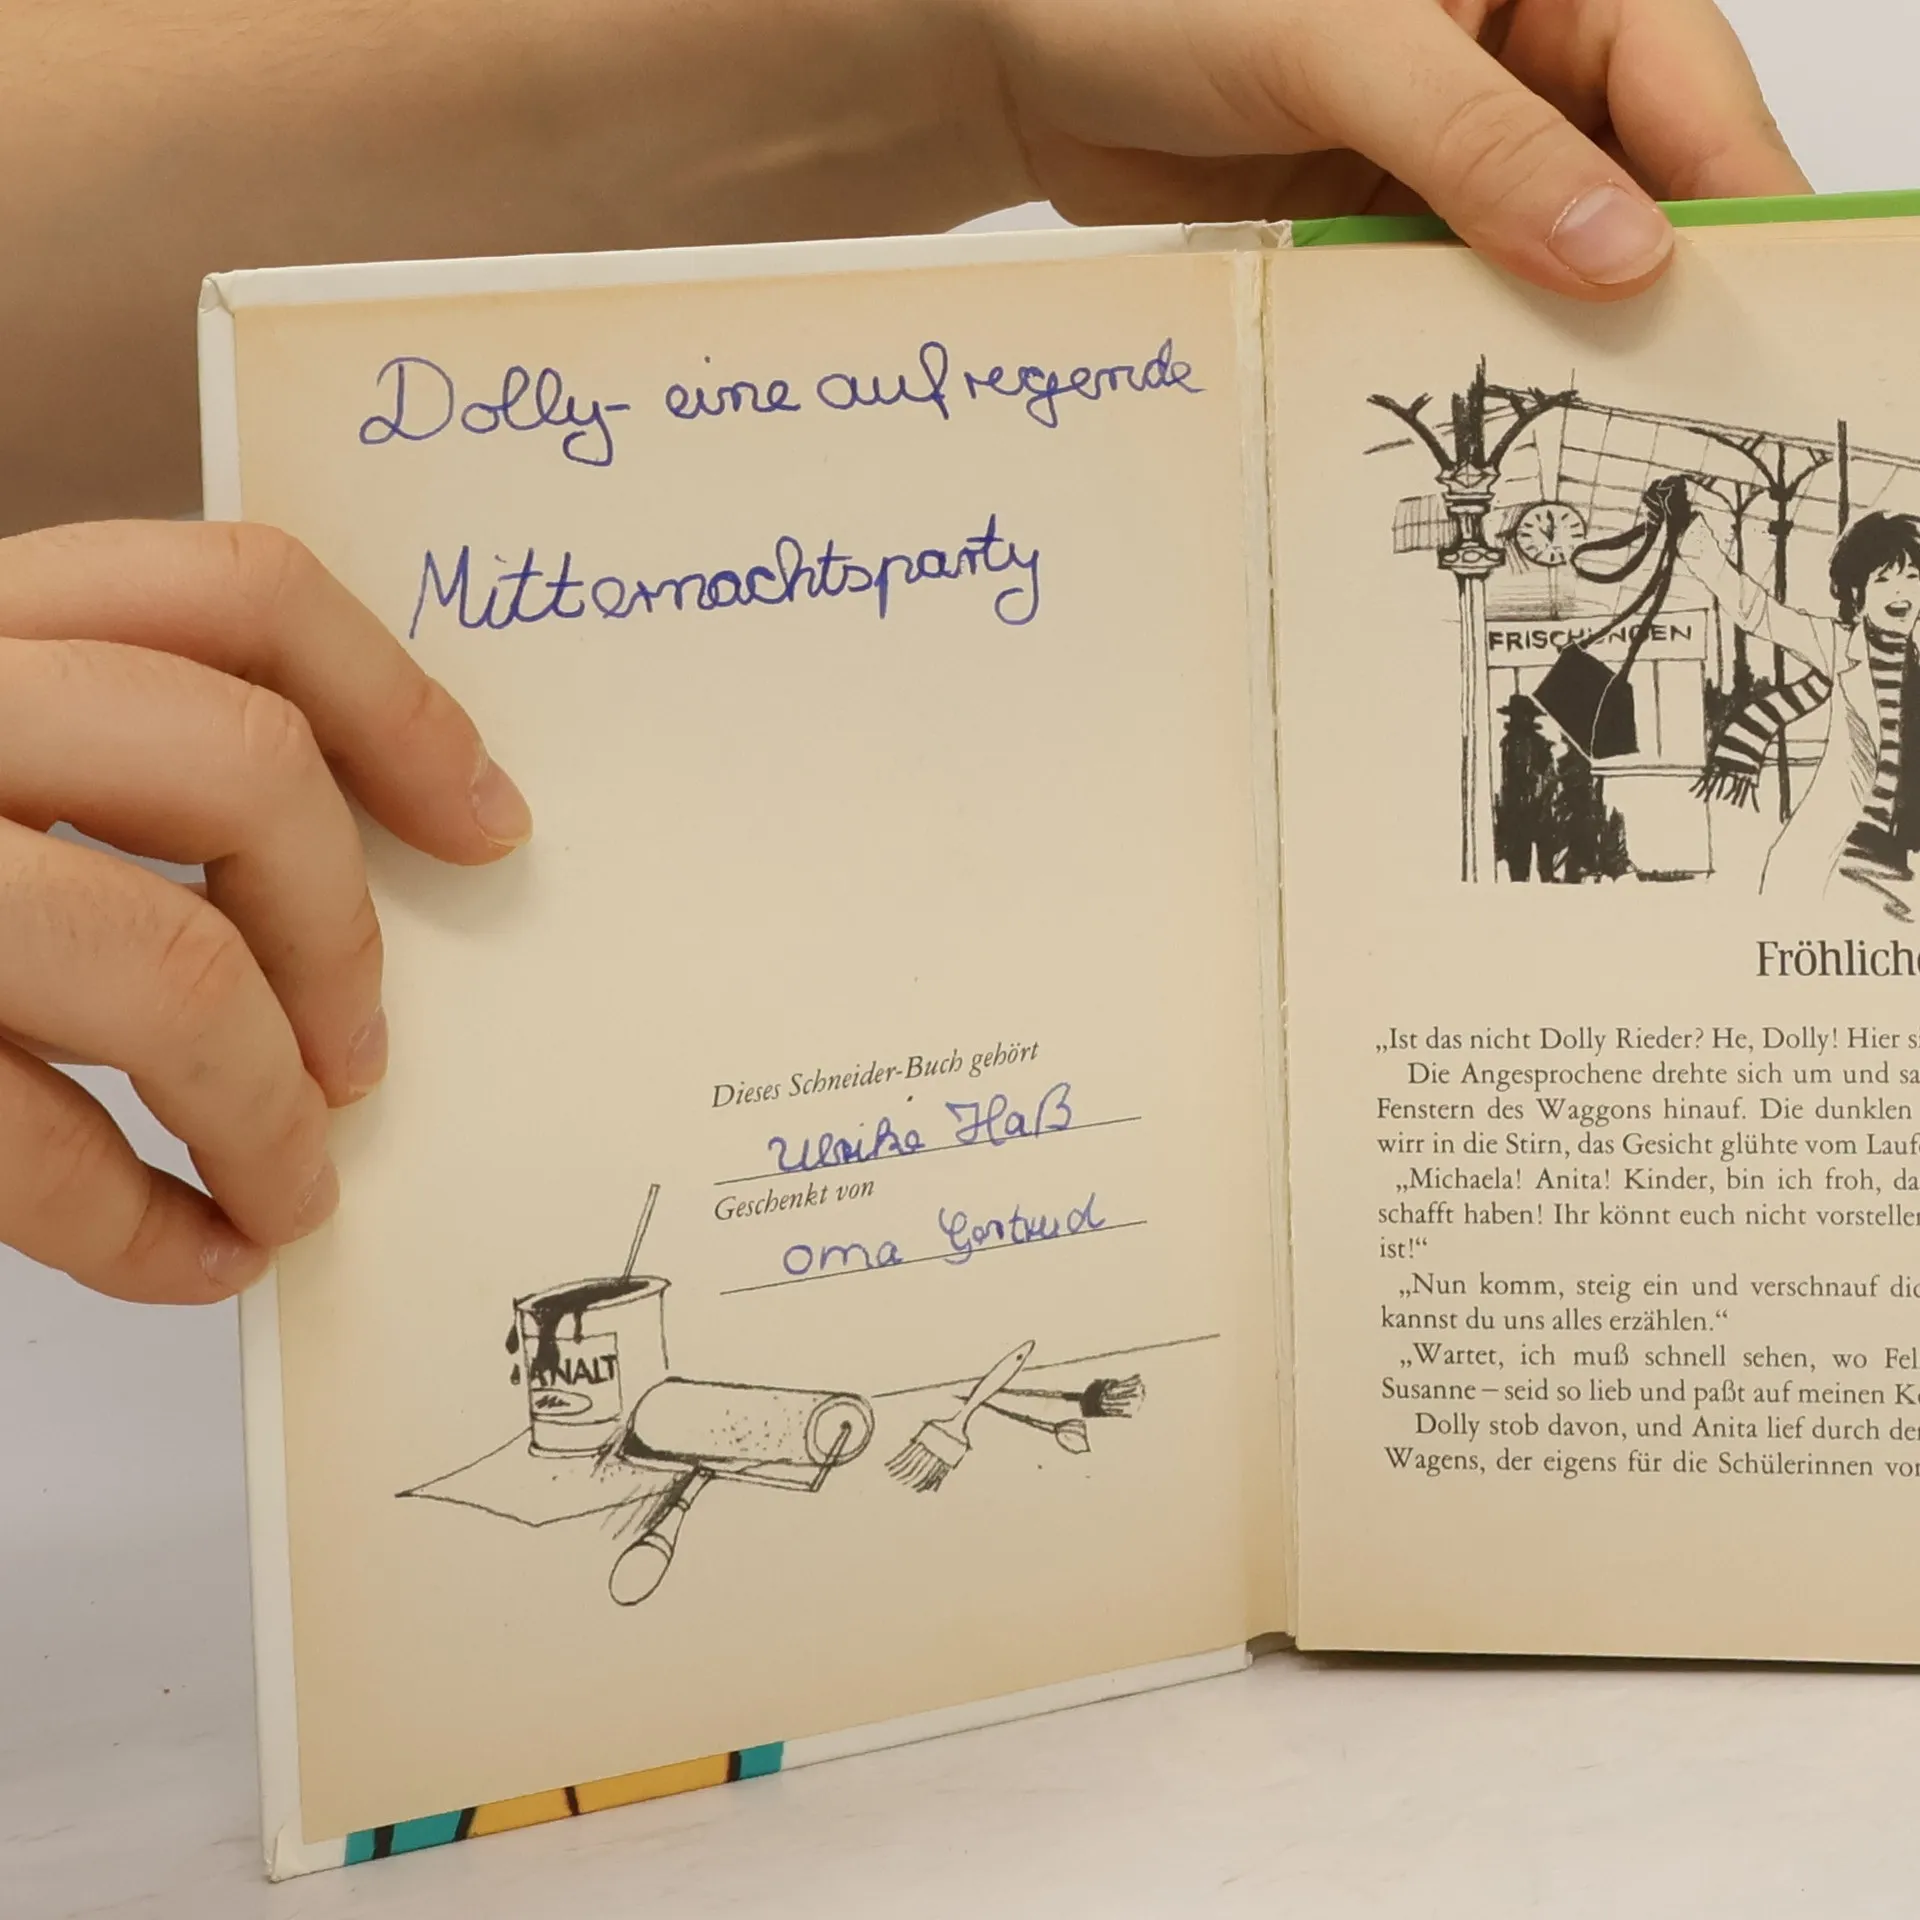 Dolly- eine aufregende
Mitternachtsparty
Dieses Schneider-Buch gehört
Ulrike Haß
Geschenkt von
Oma Gertrud
ANALT
FRISCHUNGEN
Fröhliche
„Ist das nicht Dolly Rieder? He, Dolly! Hier s
Die Angesprochene drehte sich um und sa
Fenstern des Waggons hinauf. Die dunklen
wirr in die Stirn, das Gesicht glühte vom Lauf
„Michaela! Anita! Kinder, bin ich froh, da
schafft haben! Ihr könnt euch nicht vorstelle
ist!“
„Nun komm, steig ein und verschnauf dic
kannst du uns alles erzählen.“
„Wartet, ich muß schnell sehen, wo Fel
Susanne – seid so lieb und paßt auf meinen K
Dolly stob davon, und Anita lief durch de
Wagens, der eigens für die Schülerinnen vor